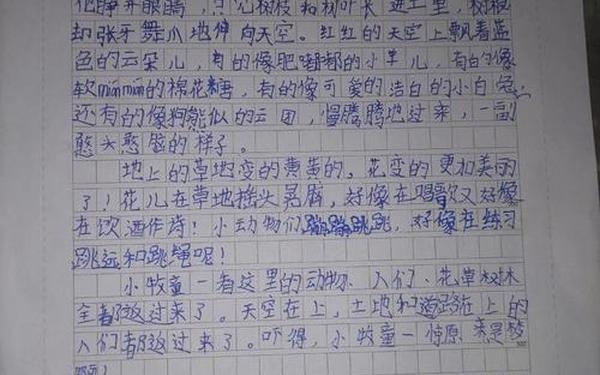 他睁开眼睛，只见树枝和树叶长进土里，树根
却张牙舞爪地伸向天空。红红的天空上飘着蓝
色的云朵儿，有的像肥嘟嘟的小羊儿，有的像
软mīnmīn的棉花糖，有的像可爱的洁白的小白兔
还有的像狗熊似的云团，慢腾腾地过来，一副
憨头憨脑的样子。
地上的草地变的黄黄的。花变的更加美丽
了！花儿在草地摇头晃脑，好像在唱歌又好像
在饮酒作诗！小动物们蹦蹦跳跳，好像在练习
跳远和跳绳呢！
小牧童一看这里的动物、人们、花草树木
全都反过来了。天空在上，土地和道路在上的
人们都反过来了。吓得，小牧童一惊原来是梦